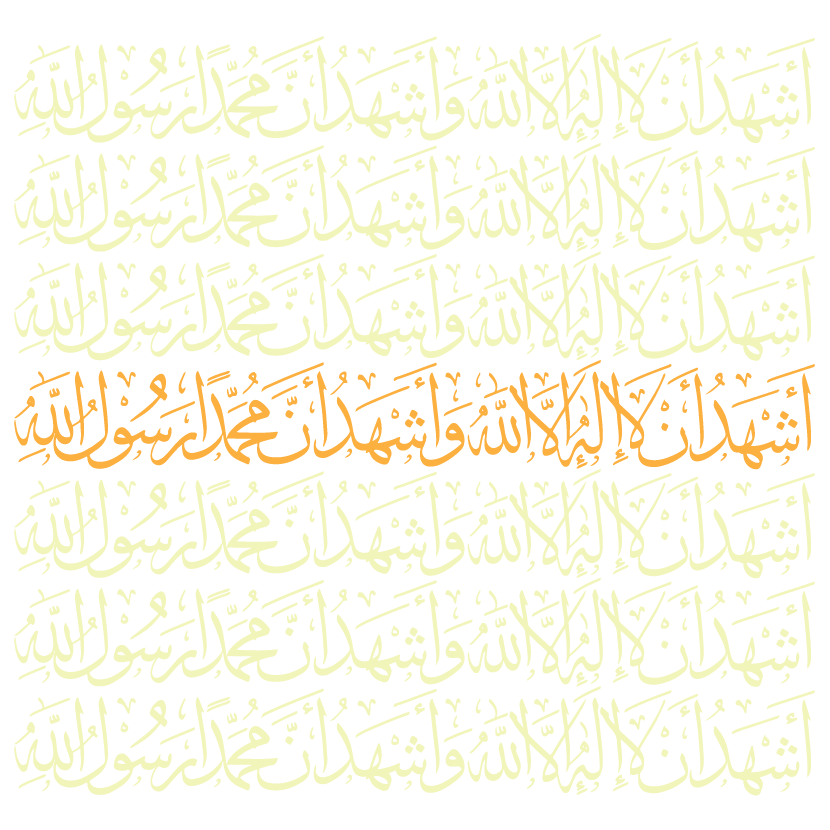 أَشْهَدُ أَنْ لَا إِلَٰهَ إِلَّا اللَّهُ وَأَشْهَدُ أَنَّ مُحَمَّدًا رَسُولُ اللَّهِ
أَشْهَدُ أَنْ لَا إِلَٰهَ إِلَّا اللَّهُ وَأَشْهَدُ أَنَّ مُحَمَّدًا رَسُولُ اللَّهِ
أَشْهَدُ أَنْ لَا إِلَٰهَ إِلَّا اللَّهُ وَأَشْهَدُ أَنَّ مُحَمَّدًا رَسُولُ اللَّهِ
أَشْهَدُ أَنْ لَا إِلَٰهَ إِلَّا اللَّهُ وَأَشْهَدُ أَنَّ مُحَمَّدًا رَسُولُ اللَّهِ
أَشْهَدُ أَنْ لَا إِلَٰهَ إِلَّا اللَّهُ وَأَشْهَدُ أَنَّ مُحَمَّدًا رَسُولُ اللَّهِ
أَشْهَدُ أَنْ لَا إِلَٰهَ إِلَّا اللَّهُ وَأَشْهَدُ أَنَّ مُحَمَّدًا رَسُولُ اللَّهِ
أَشْهَدُ أَنْ لَا إِلَٰهَ إِلَّا اللَّهُ وَأَشْهَدُ أَنَّ مُحَمَّدًا رَسُولُ اللَّهِ